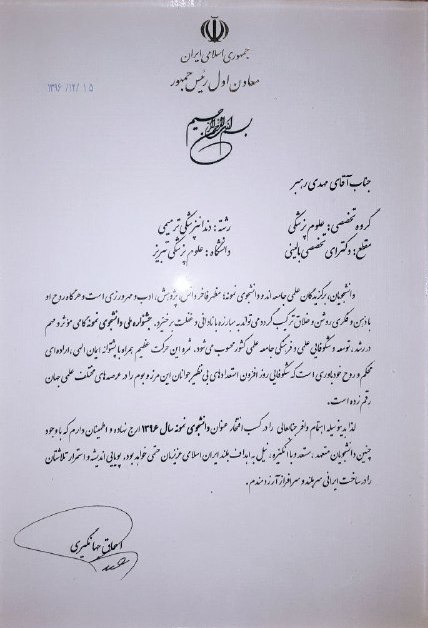 جمهوری اسلامی ایران
معاون اول رئیس جمهور
۱۳۹۶/۱۲/۱۵
بسم الله الرحمن الرحیم
جناب آقای مهدی رهبر
گروه تخصصی: علوم پزشکی رشته: دندانپزشکی ترمیمی
مقطع: دکترای تخصصی بالینی دانشگاه: علوم پزشکی تبریز
دانشجویان، برگزیدگان علمی جامعه اند و دانشجوی نمونه؛ مظهر فاخر دانش، پژوهش، ادب و مهرورزی است و هرگاه روح او
با ذهن و فکری روشن و خلاق ترکیب گردد می تواند به مبارزه با نادانی و غفلت برخیزد. جشنواره ملی دانشجوی نمونه گامی مؤثر و مهم
در رشد، توسعه و شکوفایی علمی و فرهنگی جامعه علمی کشور محسوب می شود. ثمره این حرکت عظیم همراه با پشتوانه ایمان الهی، اراده ای
محکم و روح خودباوری است که شکوفایی روز افزون استعدادهای بی نظیر جوانان این مرز و بوم را در عرصه های مختلف علمی جهان
رقم زده است.
لذا بدینوسیله اهتمام وافر جنابعالی را در کسب افتخار عنوان دانشجوی نمونه سال ۱۳۹۶ ارج نهاده و اطمینان دارم که با وجود
چنین دانشجویان متعهد، مستعد و با انگیزه، نیل به اهداف بلند ایران اسلامی عزیزمان حتمی خواهد بود. پویایی اندیشه و استمرار تلاشتان
را در ساخت ایرانی سربلند و سرافراز آرزومندم.
اسحاق جهانگیری